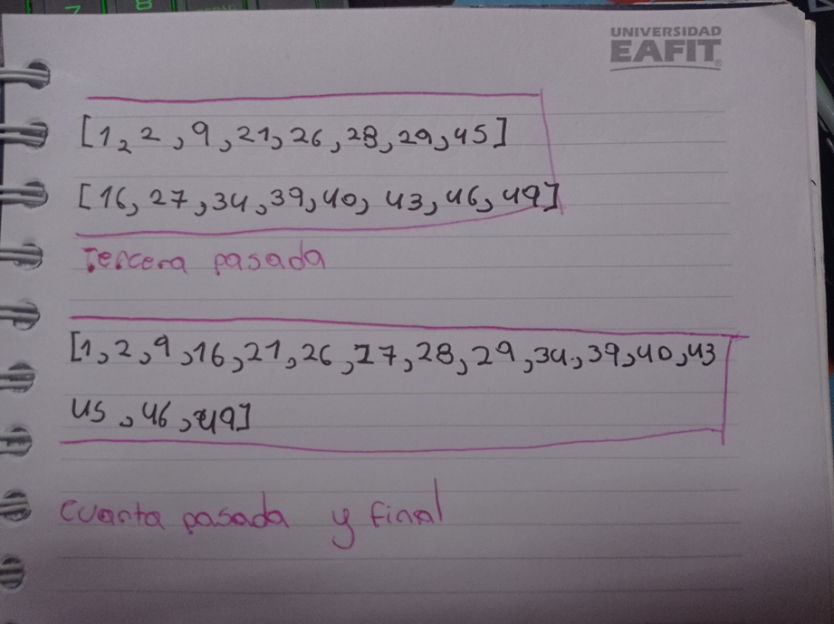 UNIVERSIDAD
EAFIT
[1, 2, 9, 21, 26, 28, 29, 45]
[16, 27, 34, 39, 40, 43, 46, 49]
Tercera pasada
[1, 2, 9, 16, 21, 26, 27, 28, 29, 34, 39, 40, 43
45, 46, 49]
cuarta pasada y final